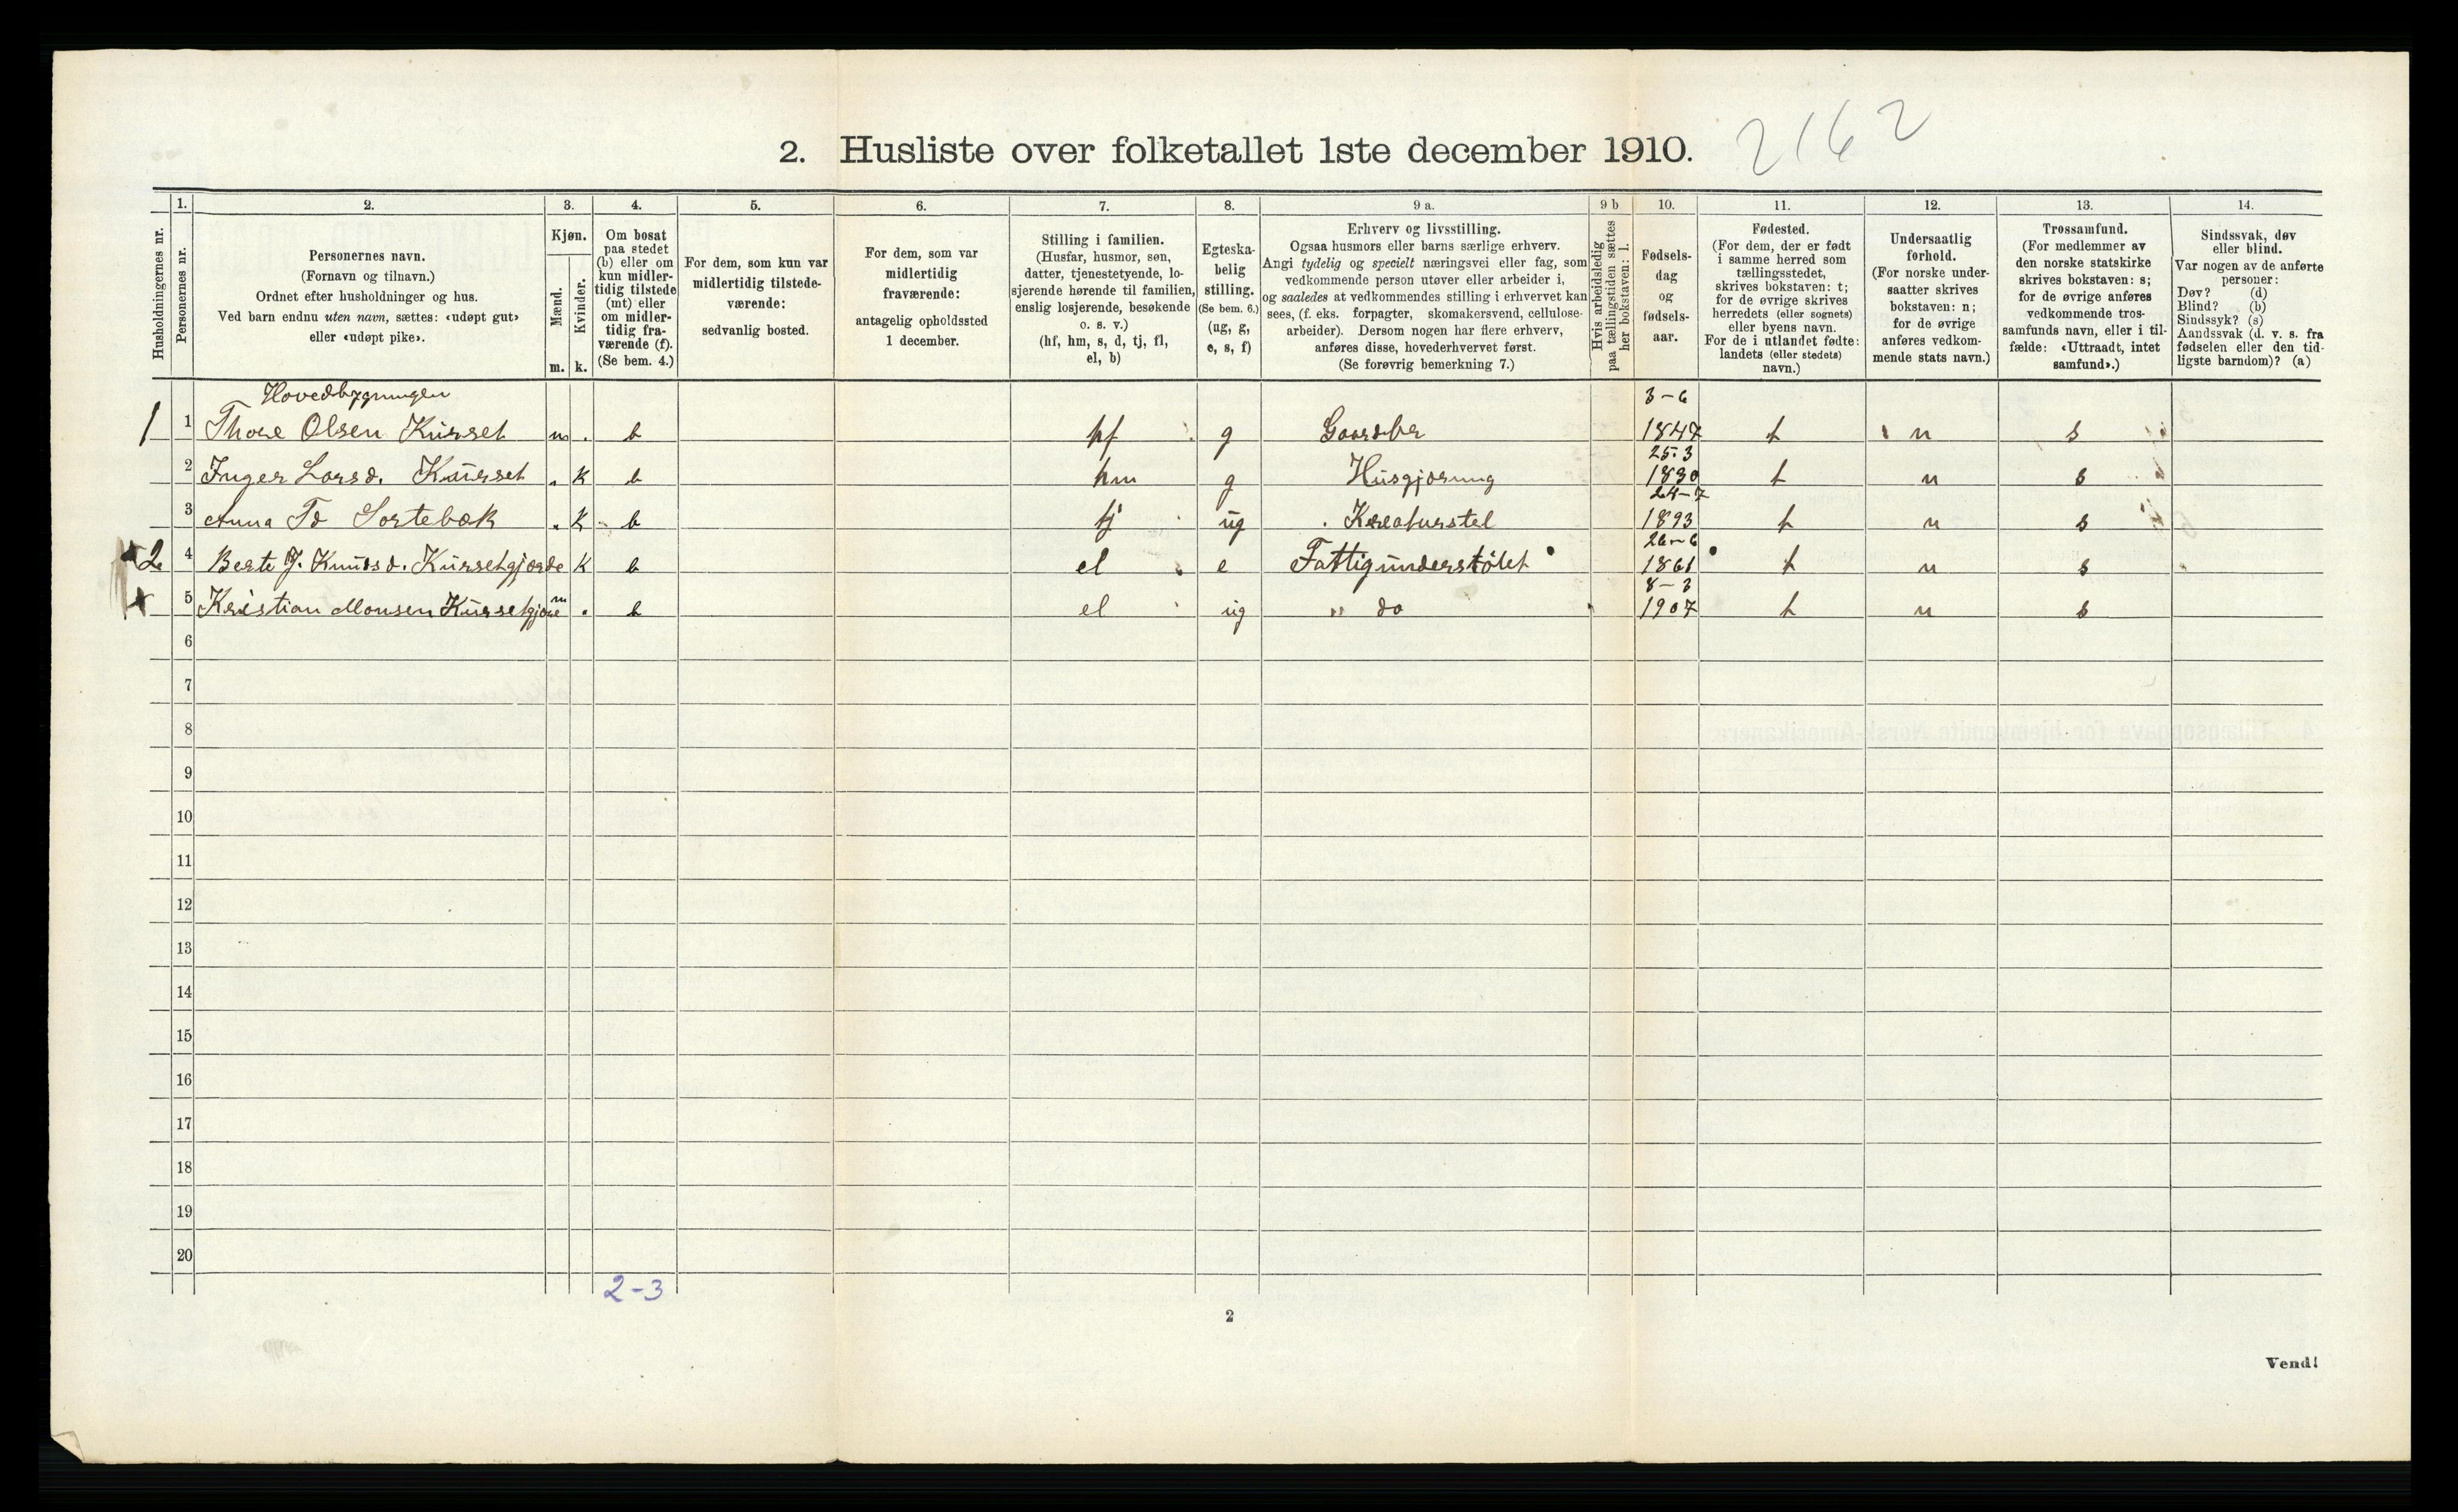 2162
2. Husliste over folketallet 1ste december 1910.
Husholdningernes nr.
1. Personernes nr.
2. Personernes navn.
(Fornavn og tilnavn.)
Ordnet efter husholdninger og hus.
Ved barn endnu uten navn, sættes: «udøpt gut»
eller «udøpt pike».
3. Kjøn.
Mænd. Kvinder.
m. k.
4. Om bosat
paa stedet
(b) eller om
kun midler-
tidig tilstede
(mt) eller
om midler-
tidig fra-
værende (f).
(Se bem. 4.)
5. For dem, som kun var
midlertidig tilstede-
værende:
sedvanlig bosted.
6. For dem, som var
midlertidig
fraværende:
antagelig opholdssted
1 december.
7. Stilling i familien.
(Husfar, husmor, søn,
datter, tjenestetyende, lo-
sjerende hørende til familien,
enslig losjerende, besøkende
o. s. v.)
(hf, hm, s, d, tj, fl,
el, b)
8. Egteska-
belig
stilling.
(Se bem. 6.)
(ug, g,
e, s, f)
9 a. Erhverv og livsstilling.
Ogsaa husmors eller barns særlige erhverv.
Angi tydelig og specielt næringsvei eller fag, som
vedkommende person utøver eller arbeider i,
og saaledes at vedkommendes stilling i erhvervet kan
sees, (f. eks. forpagter, skomakersvend, cellulose-
arbeider). Dersom nogen har flere erhverv,
anføres disse, hovederhvervet først.
(Se forøvrig bemerkning 7.)
9 b Hvis arbeidsledig
paa tællingstiden sættes
her bokstaven: l.
10. Fødsels-
dag
og
fødsels-
aar.
11. Fødested.
(For dem, der er født
i samme herred som
tællingsstedet,
skrives bokstaven: t;
for de øvrige skrives
herredets (eller sognets)
eller byens navn.
For de i utlandet fødte:
landets (eller stedets)
navn.)
12. Undersaatlig
forhold.
(For norske under-
saatter skrives
bokstaven: n;
for de øvrige
anføres vedkom-
mende stats navn.)
13. Trossamfund.
(For medlemmer av
den norske statskirke
skrives bokstaven: s;
for de øvrige anføres
vedkommende tros-
samfunds navn, eller i til-
fælde: «Uttraadt, intet
samfund».)
14. Sindssvak, døv
eller blind.
Var nogen av de anførte
personer:
Døv? (d)
Blind? (b)
Sindssyk? (s)
Aandssvak (d. v. s. fra
fødselen eller den tid-
ligste barndom)? (a)
Hovedbygningen
1 1 Thore Olsen Kurset m . b hf g Gaardbr 3-6 1847 t n s
2 Inger Larsd. Kurset . k b hm g Husgjerning 25.3 1830 t n s
3 Anna Td Sortebæk . k b tj ug Kreaturstel 24-7 1893 t n s
2 4 Berte J. Knudsd. Kursetgjerde k b el e Fattigunderstölet 26-6 1861 t n s
5 Kristian Monsen Kursetgjerde m . b el ug " do 8-3 1907 t n s
6
7
8
9
10
11
12
13
14
15
16
17
18
19
20
2-3
2
Vend!